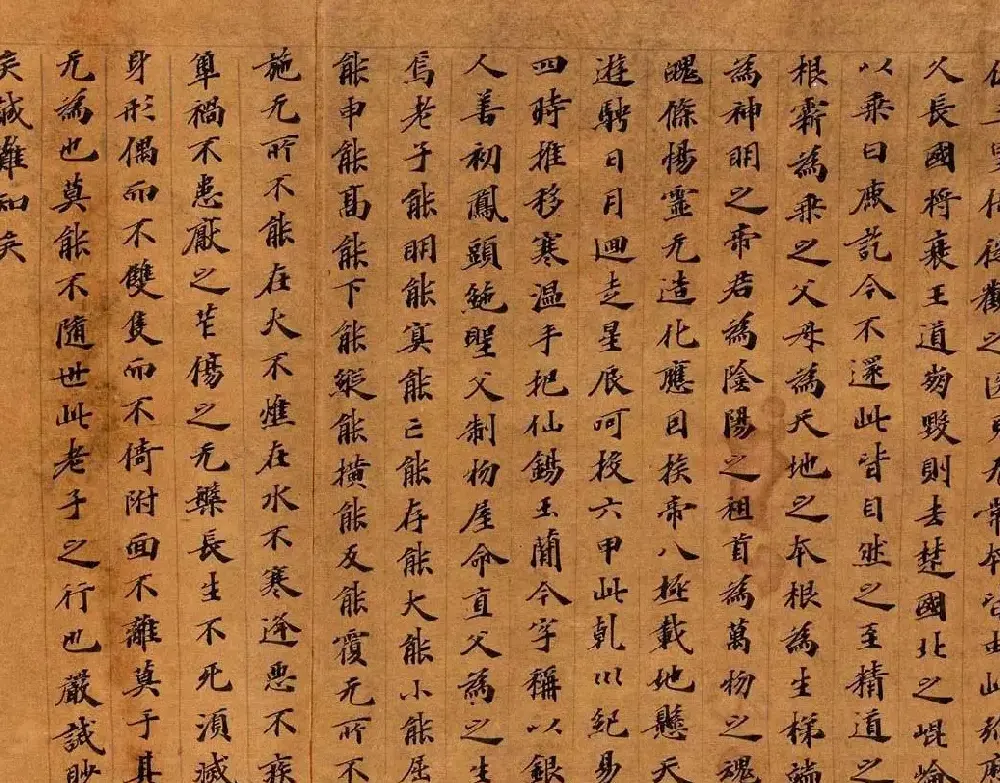 之
久長國将衰王道崩毀則去楚國北之崐崘
以乗白鹿訖今不還此皆自然之至精道之
根霛為乗之父母為天地之夲根為生梯端
為神明之帝君為隂陽之祖首為萬物之魂
魄條暢靈无造化應因挨帝八極載地懸天
遊騁日月迴走星辰呵投六甲此乹以紀易
四時推移寒温手把仙錫玉蕳今字稱以銀
人善初鳳頭絁聖父制物屋命直父為之生
焉老子能明能冥能亡能存能大能小能屈
能申能髙能下能縱能横能反能覆无所不
施无所不能在火不燋在水不寒逢悪不疾
觸禍不患厭之不苦傷之无𤻤長生不死湏滅
身形偶而不雙隻而不倚附而不離莫于其
无為也莫能不隨世此老子之行也嚴誡眇
矣誠難知矣